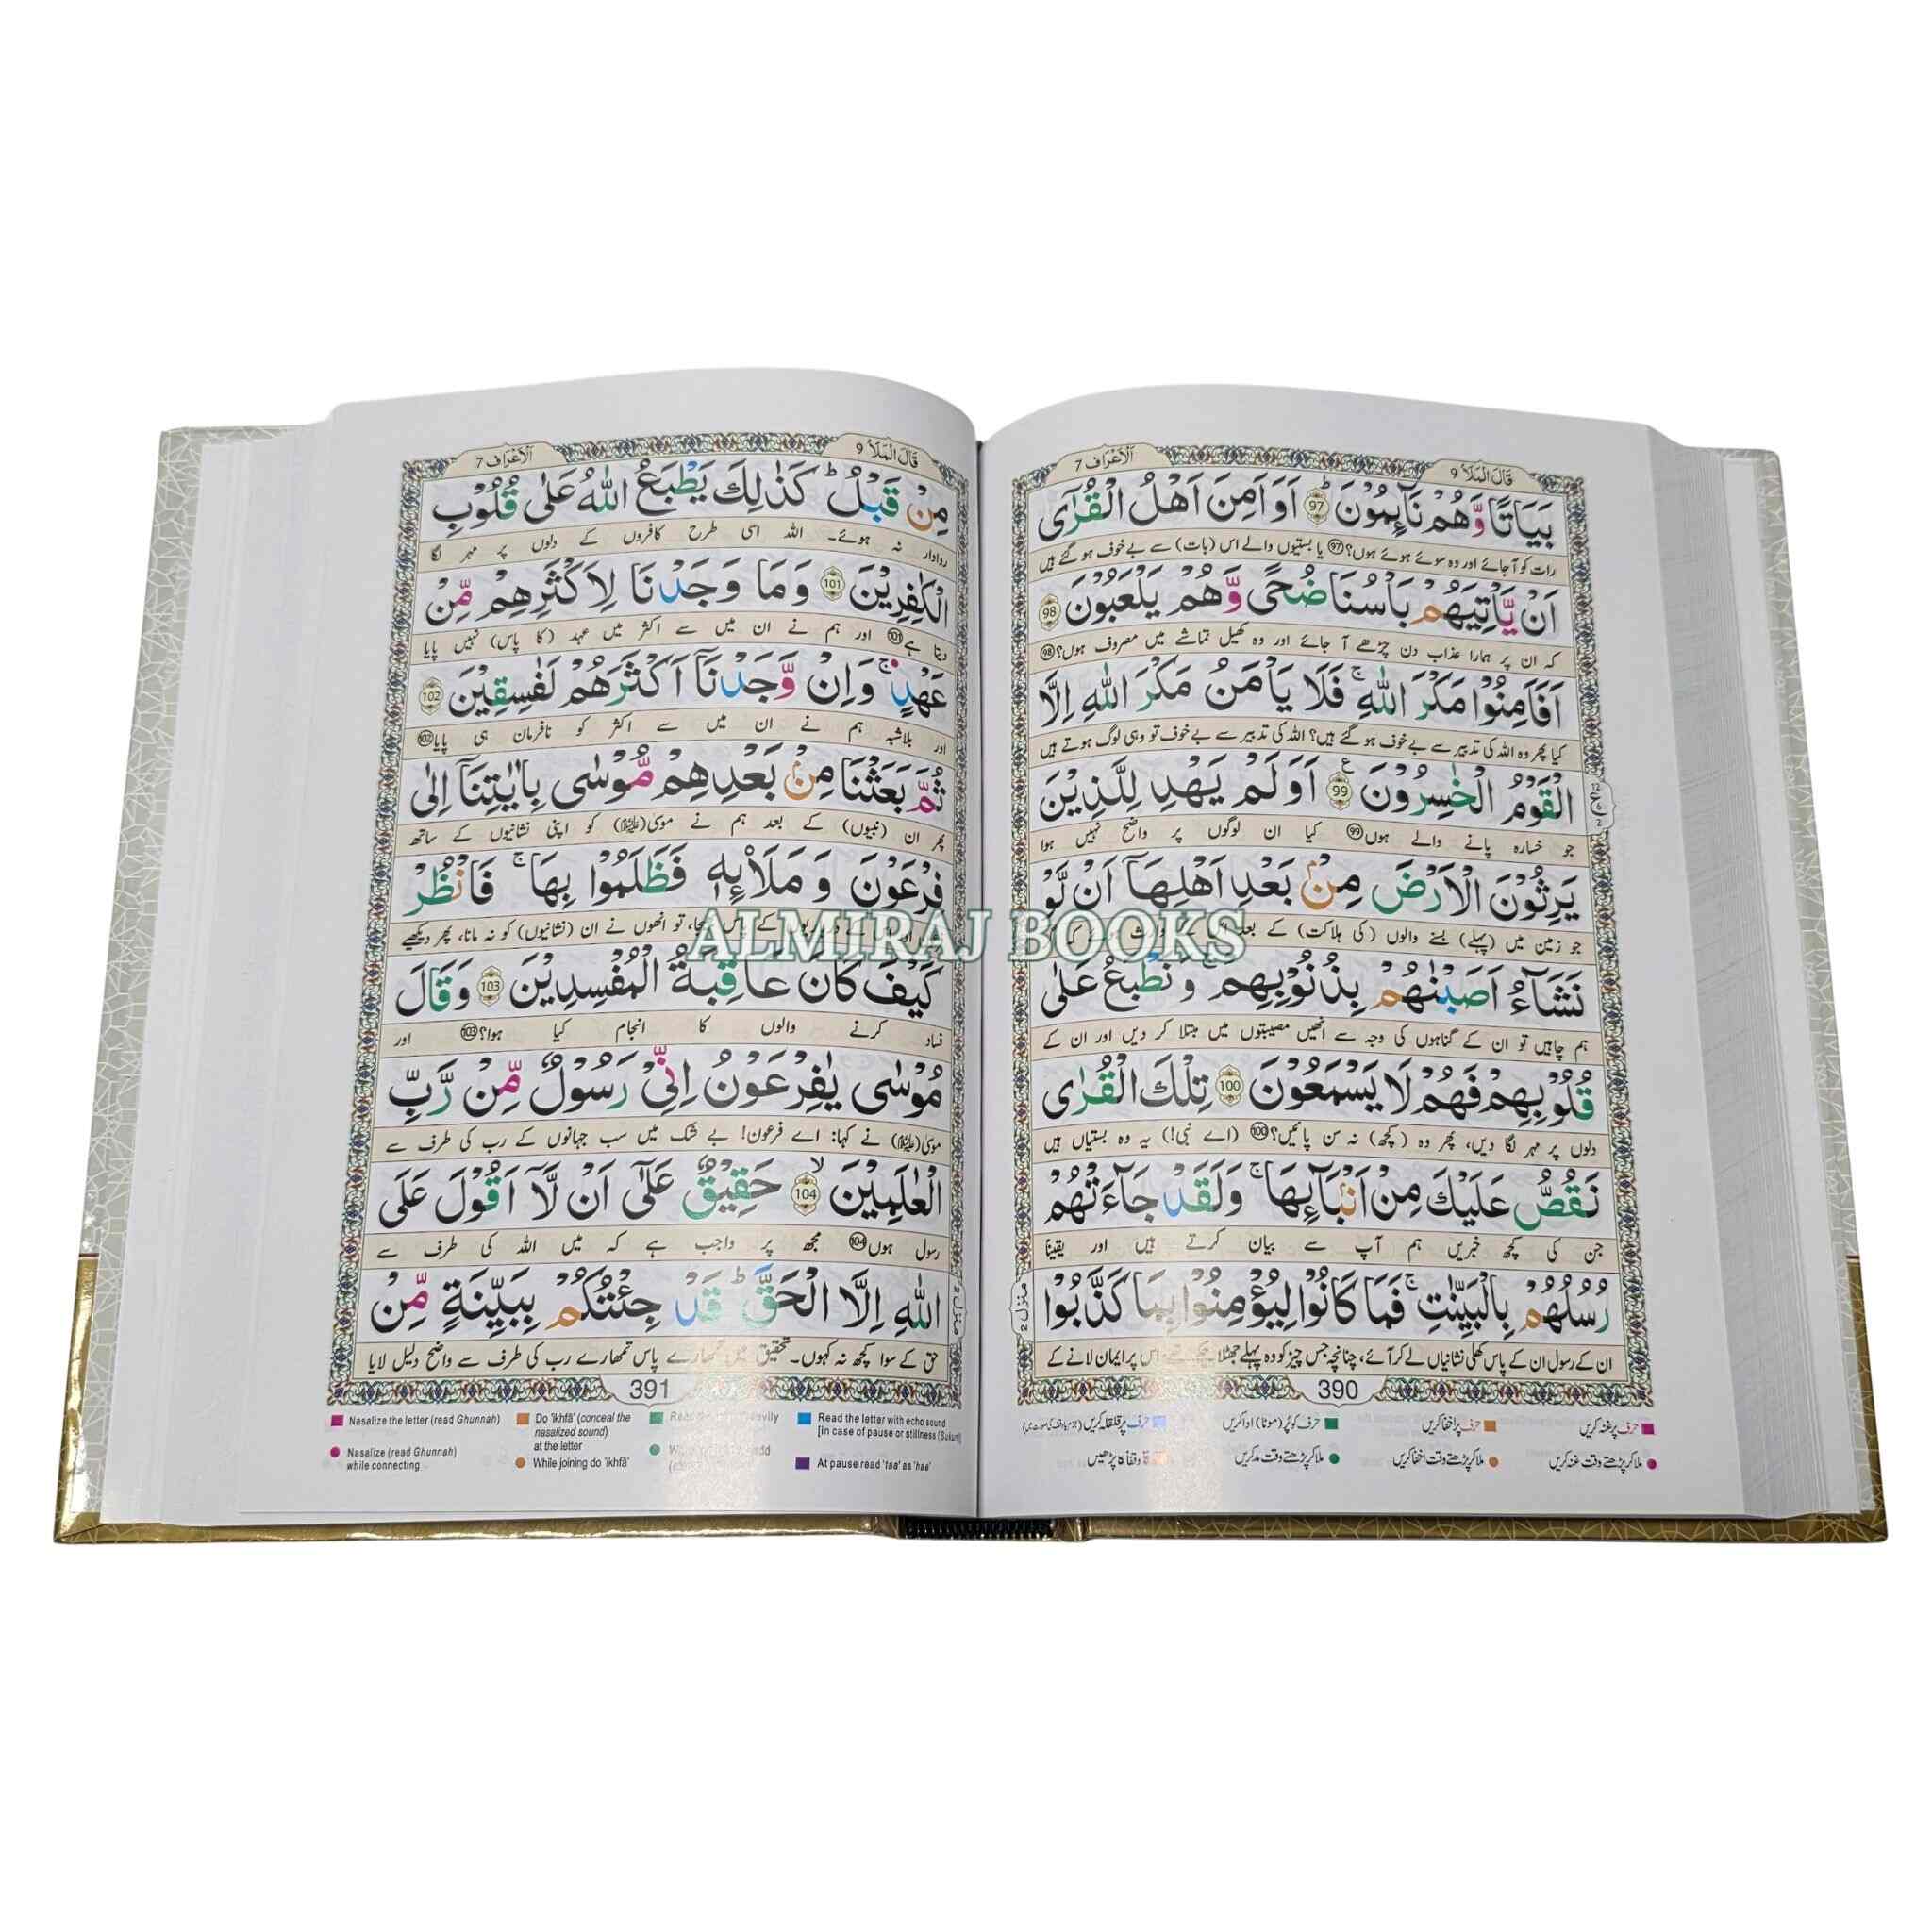 قَالَ الْمَلَاُ 9
اَلْاَعْرَاف 7
بَيَاتًا وَّهُمْ نَآئِمُوْنَ ؕ 97 اَوَ اَمِنَ اَهْلُ الْقُرٰٓى
رات کو آ جائے اور وہ سوئے ہوئے ہوں؟ 97 یا بستیوں والے اس (بات) سے بے خوف ہو گئے ہیں
اَنْ يَّاْتِيَهُمْ بَاْسُنَا ضُحًى وَّهُمْ يَلْعَبُوْنَ 98
کہ ان پر ہمارا عذاب دن چڑھے آ جائے اور وہ کھیل تماشے میں مصروف ہوں؟ 98
اَفَاَمِنُوْا مَكْرَ اللّٰهِ ۚ فَلَا يَاْمَنُ مَكْرَ اللّٰهِ اِلَّا
کیا پھر وہ اللہ کی تدبیر سے بے خوف ہو گئے ہیں؟ اللہ کی تدبیر سے بے خوف تو وہی لوگ ہوتے ہیں
الْقَوْمُ الْخٰسِرُوْنَ 99 ع اَوَلَمْ يَهْدِ لِلَّذِيْنَ
جو خسارہ پانے والے ہوں 99 کیا ان لوگوں پر واضح نہیں ہوا
يَرِثُوْنَ الْاَرْضَ مِنْۢ بَعْدِ اَهْلِهَآ اَنْ لَّوْ
جو زمین میں (پہلے) بسنے والوں (کی ہلاکت) کے بعد
نَشَآءُ اَصَبْنٰهُمْ بِذُنُوْبِهِمْ ۚ وَنَطْبَعُ عَلٰى
ہم چاہیں تو ان کے گناہوں کی وجہ سے انھیں مصیبتوں میں مبتلا کر دیں اور ان کے
قُلُوْبِهِمْ فَهُمْ لَا يَسْمَعُوْنَ 100 تِلْكَ الْقُرٰى
دلوں پر مہر لگا دیں، پھر وہ (کچھ) نہ سن پائیں؟ 100 (اے نبی!) یہ وہ بستیاں ہیں
نَقُصُّ عَلَيْكَ مِنْ اَنْۢبَآئِهَا ۚ وَلَقَدْ جَآءَتْهُمْ
جن کی کچھ خبریں ہم آپ سے بیان کرتے ہیں اور یقیناً
رُسُلُهُمْ بِالْبَيِّنٰتِ ۚ فَمَا كَانُوْا لِيُؤْمِنُوْا بِمَا كَذَّبُوْا
ان کے رسول ان کے پاس کھلی نشانیاں لے کر آئے، چنانچہ جس چیز کو وہ پہلے جھٹلا چکے تھے، اس پر ایمان لانے کے
منزل 2
390
حرف پر غنہ کریں
حرف پر اخفا کریں
حرف کو پُر (موٹا) ادا کریں
حرف پر قلقلہ کریں
ملا کر پڑھتے وقت غنہ کریں
ملا کر پڑھتے وقت اخفا کریں
ملا کر پڑھتے وقت مد کریں
قَالَ الْمَلَاُ 9
اَلْاَعْرَاف 7
مِنْ قَبْلُ ؕ كَذٰلِكَ يَطْبَعُ اللّٰهُ عَلٰى قُلُوْبِ
روادار نہ ہوئے۔ اللہ اسی طرح کافروں کے دلوں پر مہر لگا
الْكٰفِرِيْنَ 101 وَمَا وَجَدْنَا لِاَكْثَرِهِمْ مِّنْ
دیتا ہے 101 اور ہم نے ان میں سے اکثر میں عہد (کا پاس) نہیں پایا
عَهْدٍ ۚ وَاِنْ وَّجَدْنَآ اَكْثَرَهُمْ لَفٰسِقِيْنَ 102
اور بلاشبہ ہم نے ان میں سے اکثر کو نافرمان ہی پایا 102
ثُمَّ بَعَثْنَا مِنْۢ بَعْدِهِمْ مُّوْسٰى بِاٰيٰتِنَآ اِلٰى
پھر ان (نبیوں) کے بعد ہم نے موسیٰ (علیہ السلام) کو اپنی نشانیوں کے ساتھ
فِرْعَوْنَ وَمَلَا۟ئِهٖ فَظَلَمُوْا بِهَا ۚ فَانْظُرْ
تو انھوں نے ان (نشانیوں) کو نہ مانا، پھر دیکھیے
كَيْفَ كَانَ عَاقِبَةُ الْمُفْسِدِيْنَ 103 وَقَالَ
فساد کرنے والوں کا انجام کیا ہوا؟ 103 اور
مُوْسٰى يٰفِرْعَوْنُ اِنِّىْ رَسُوْلٌ مِّنْ رَّبِّ
موسیٰ (علیہ السلام) نے کہا: اے فرعون! بے شک میں سب جہانوں کے رب کی طرف سے
الْعٰلَمِيْنَ ۙ 104 حَقِيْقٌ عَلٰٓى اَنْ لَّآ اَقُوْلَ عَلَى
رسول ہوں 104 مجھ پر واجب ہے کہ میں اللہ کی طرف سے
اللّٰهِ اِلَّا الْحَقَّ ؕ قَدْ جِئْتُكُمْ بِبَيِّنَةٍ مِّنْ
حق کے سوا کچھ نہ کہوں۔ تحقیق میں تمھارے پاس تمھارے رب کی طرف سے واضح دلیل لایا
منزل 2
391
Nasalize the letter (read Ghunnah)
Do 'ikhfā' (conceal the nasalized sound) at the letter
Read the letter with echo sound [in case of pause or stillness (Sukun)]
Nasalize (read Ghunnah) while connecting
While joining do 'ikhfā'
At pause read 'taa' as 'haa'
ALMIRAJ BOOKS